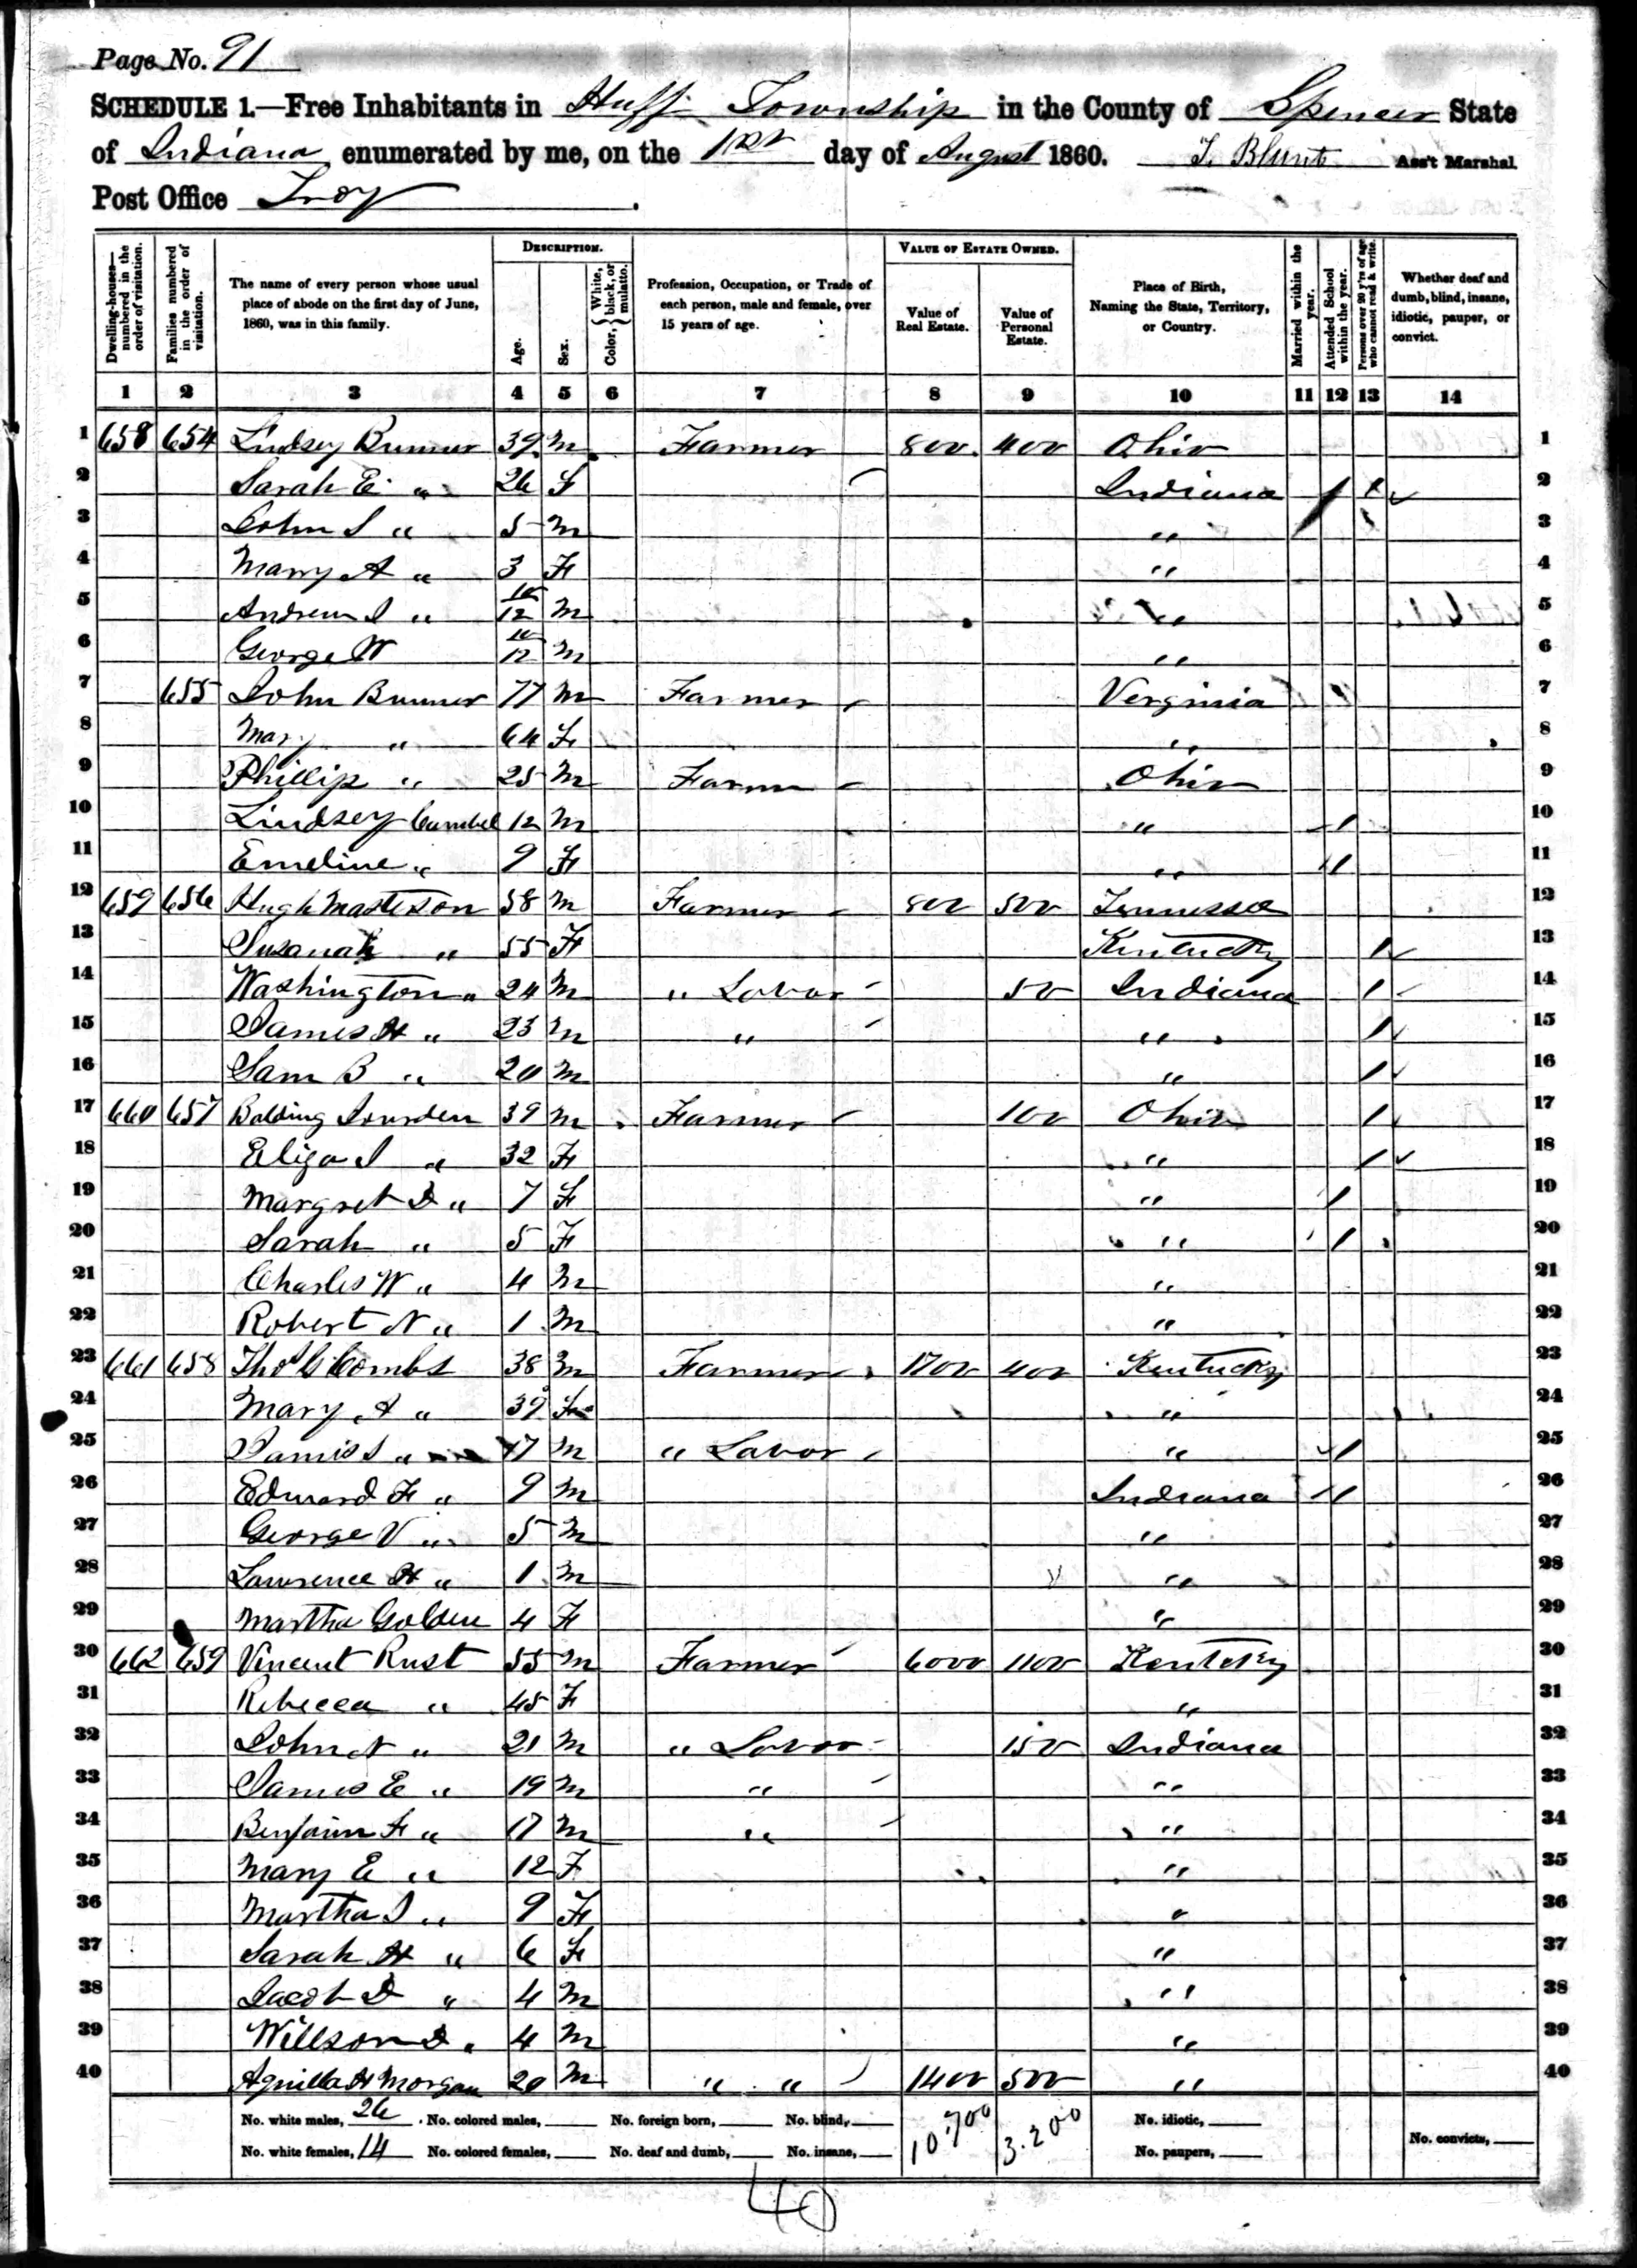 Page No. 91
SCHEDULE 1.—Free Inhabitants in Huff Township in the County of Spencer State
of Indiana enumerated by me, on the 1st day of August 1860. T. Blunt Ass't Marshal
Post Office Troy.
Dwelling-houses—numbered in the order of visitation. Families numbered in the order of visitation. The name of every person whose usual place of abode on the first day of June, 1860, was in this family. DESCRIPTION. Age. Sex. Color, { White, black, or mulatto. Profession, Occupation, or Trade of each person, male and female, over 15 years of age. VALUE OF ESTATE OWNED. Value of Real Estate. Value of Personal Estate. Place of Birth, Naming the State, Territory, or Country. Married within the year. Attended School within the year. Persons over 20 y'rs of age who cannot read & write. Whether deaf and dumb, blind, insane, idiotic, pauper, or convict.
1 2 3 4 5 6 7 8 9 10 11 12 13 14
1 658 654 Lindsey Bunner 39 m Farmer 800 400 Ohio 1
2 Sarah E " 26 F Indiana / / 2
3 John S " 5 m " 3
4 Mary A " 3 F " 4
5 Andrew J " 10/12 m " 5
6 George W 10/12 m " 6
7 655 John Bunner 77 m Farmer Verginia 7
8 Mary " 64 F " 8
9 Phillip " 25 m Farm Ohio 9
10 Lindsey 12 m " / 10
11 Emeline " 9 F " / 11
12 659 656 Hugh Masteson 58 m Farmer 800 500 Tennessee 12
13 Susanah " 55 F Kentucky / 13
14 Washington " 24 m " Labor 50 Indiana / 14
15 James H " 23 m " " / 15
16 Sam B " 20 m " / 16
17 660 657 Bolding 39 m Farmer 100 Ohio / 17
18 Eliza J " 32 F " / 18
19 Margret D " 7 F " / 19
20 Sarah " 5 F " / 20
21 Charles W " 4 m " 21
22 Robert N " 1 m " 22
23 661 658 Thos G Combs 38 m Farmer 1700 400 Kentucky 23
24 Mary A " 39 F " 24
25 James S " 17 m " Labor " / 25
26 Edward F " 9 m Indiana / 26
27 George V " 5 m " 27
28 Lawrence H " 1 m " 28
29 Martha Golden 4 F " 29
30 662 659 Vincent Rust 55 m Farmer 6000 1100 Kentcky 30
31 Rebecca " 45 F " 31
32 John N " 21 m " Labor 150 Indiana 32
33 James E " 19 m " " 33
34 Benjamin F " 17 m " " 34
35 Mary E " 12 F " 35
36 Martha J " 9 F " 36
37 Sarah H " 6 F " 37
38 Jacob D " 4 m " 38
39 Willson D " 4 m " 39
40 Aquilla H Morgan 20 m " " 1400 500 " 40
No. white males, 26. No. colored males, No. foreign born, No. blind, 10.700 3.200 No. idiotic,
No. white females, 14 No. colored females, No. deaf and dumb, No. insane, No. paupers, No. convicts,
40